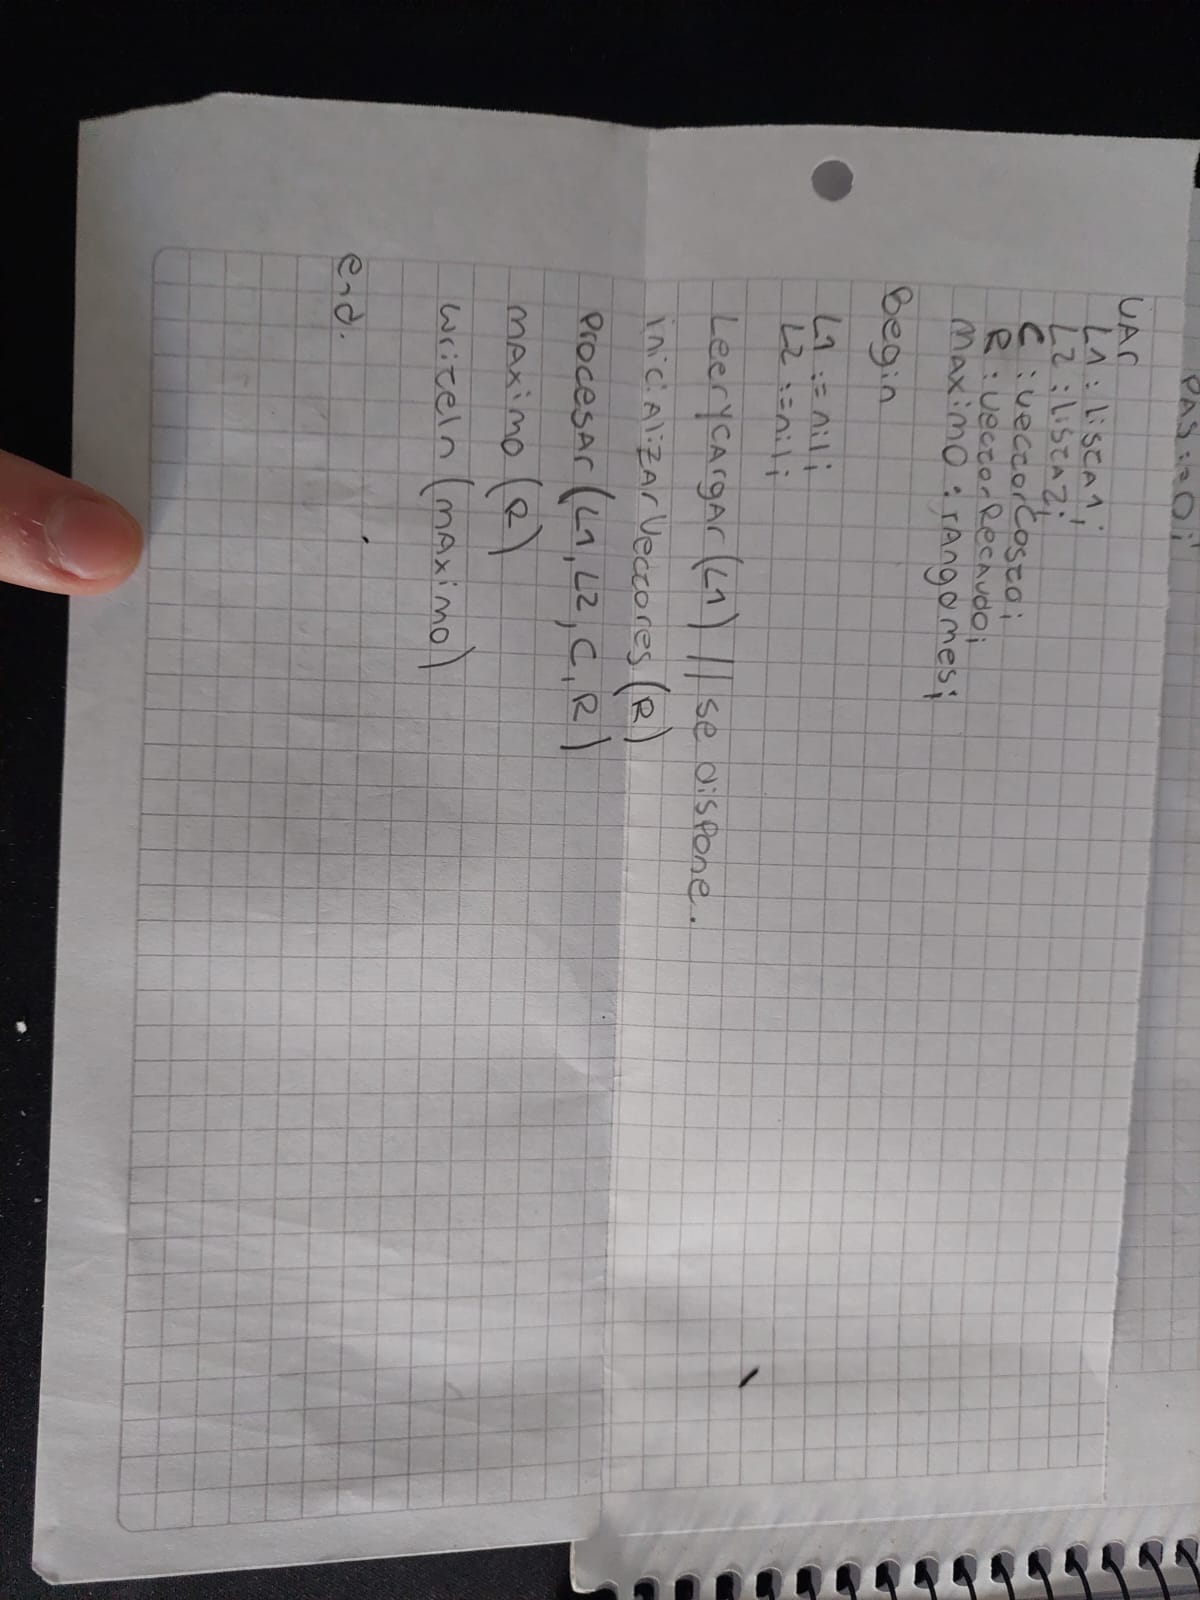 PAS:=0;
VAr
L1: listA1;
L2: listA2;
C: vectorCosto;
R: vectorRecAudo;
maximo: rAngomes;
Begin
L1 := nil;
L2 := nil;
LeerYCArgAr(L1) // se dispone.
iniciAlizArVectores(R)
procesAr(L1, L2, C, R)
mAximo(R)
writeln(mAximo)
end.